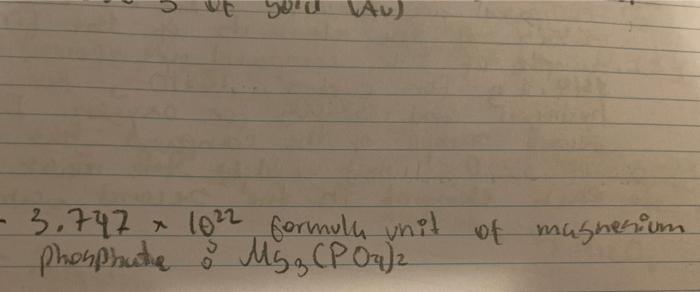 5 of gold (Au)
- 3.747 × 10²² formula unit of magnesium
phosphate : Mg₃(PO₄)₂